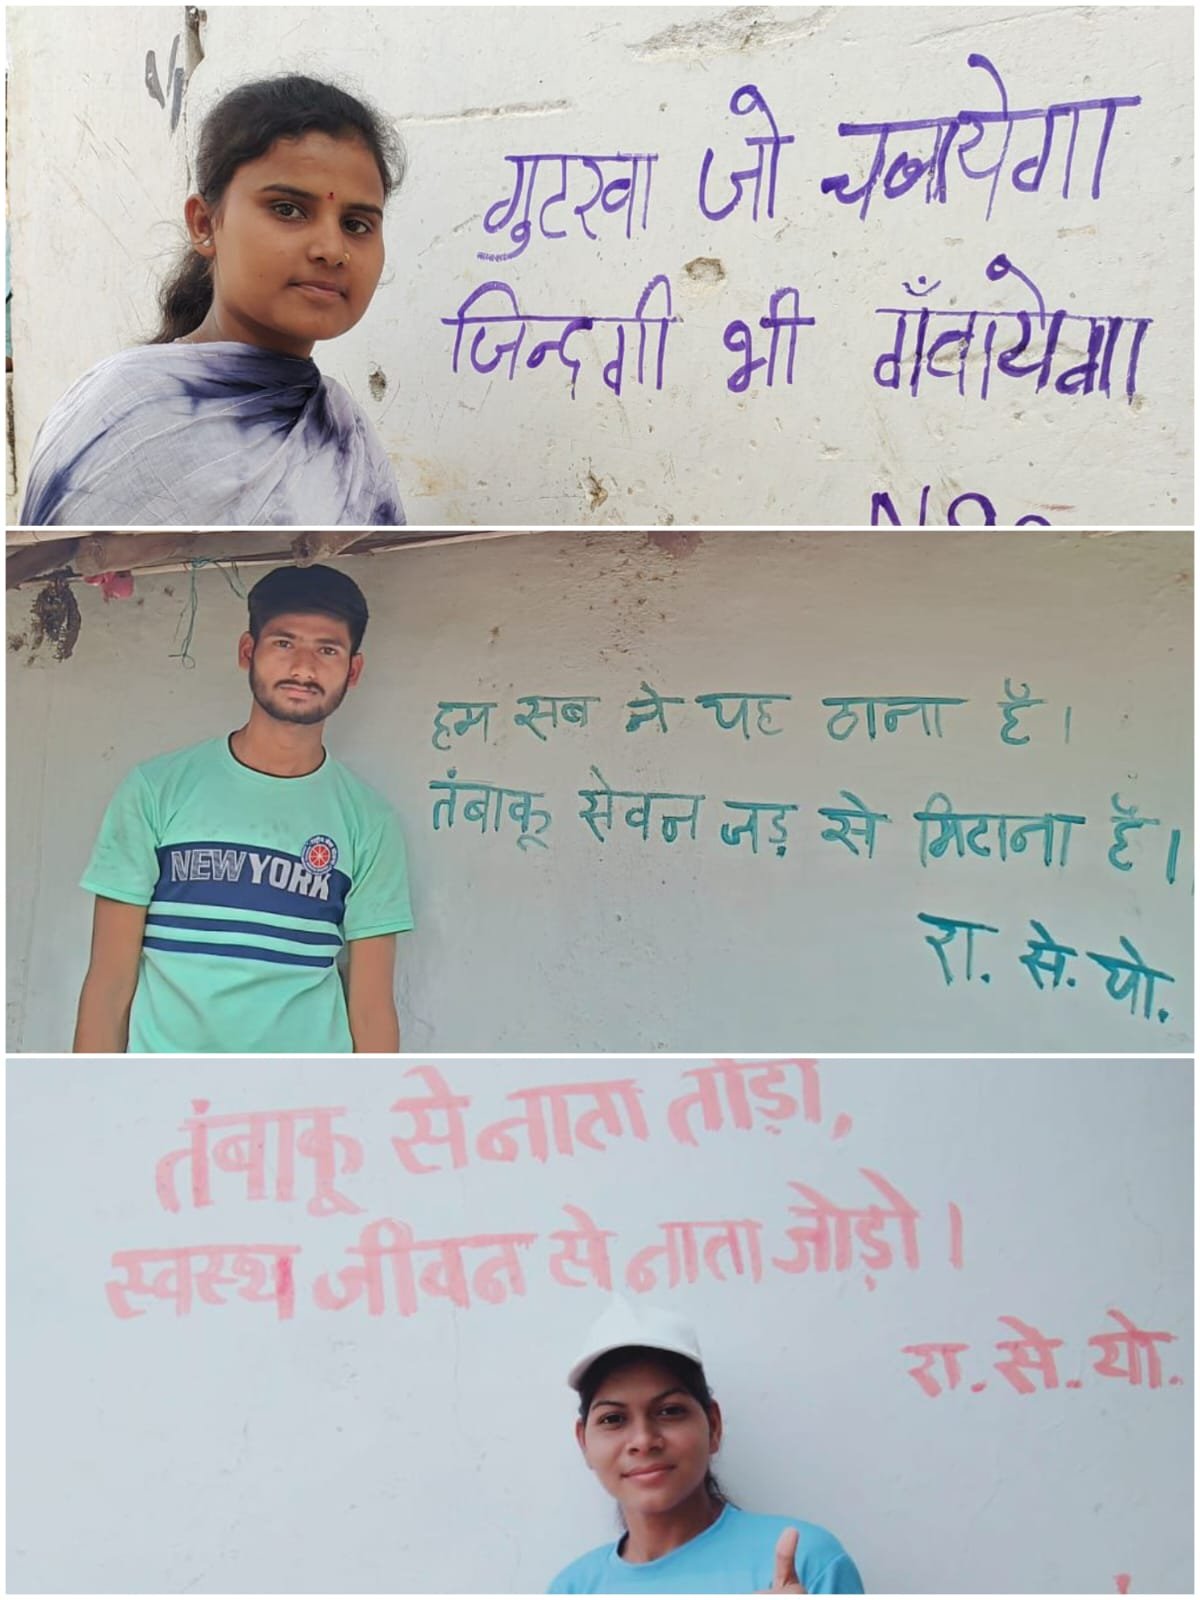 गुटखा जो चबायेगा
जिन्दगी भी गँवायेगा
हम सब ने यह ठाना है।
तंबाकू सेवन जड़ से मिटाना है।
रा. से. यो.
NEW YORK
तंबाकू से नाता तोड़ो,
स्वस्थ जीवन से नाता जोड़ो।
रा. से. यो.